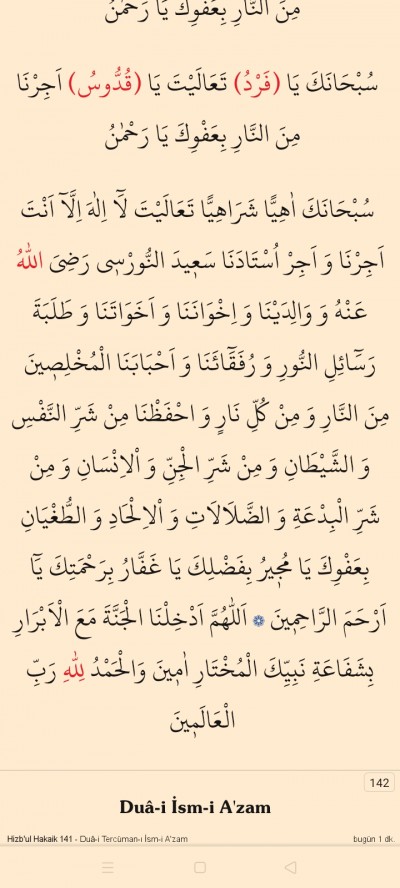 مِنَ النَّارِ بِعَفْوِكَ يَا رَحْمٰنُ
سُبْحَانَكَ يَا (فَرْدُ) تَعَالَيْتَ يَا (قُدُّوسُ) اَجِرْنَا
مِنَ النَّارِ بِعَفْوِكَ يَا رَحْمٰنُ
سُبْحَانَكَ اٰهِيًّا شَرَاهِيًّا تَعَالَيْتَ لَٓا اِلٰهَ اِلَّٓا اَنْتَ
اَجِرْنَا وَ اَجِرْ اُسْتَادَنَا سَعٖيدَ النُّورْسٖى رَضِىَ اللّٰهُ
عَنْهُ وَ وَالِدَيْنَا وَ اِخْوَانَنَا وَ اَخَوَاتَنَا وَ طَلَبَةَ
رَسَٓائِلِ النُّورِ وَ رُفَقَٓائَنَا وَ اَحْبَابَنَا الْمُخْلِصٖينَ
مِنَ النَّارِ وَ مِنْ كُلِّ نَارٍ وَ احْفَظْنَا مِنْ شَرِّ النَّفْسِ
وَ الشَّيْطَانِ وَ مِنْ شَرِّ الْجِنِّ وَ اْلاِنْسَانِ وَ مِنْ
شَرِّ الْبِدْعَةِ وَ الضَّلَالَاتِ وَ اْلاِلْحَادِ وَ الطُّغْيَانِ
بِعَفْوِكَ يَا مُجٖيرُ بِفَضْلِكَ يَا غَفَّارُ بِرَحْمَتِكَ يَٓا
اَرْحَمَ الرَّاحِمٖينَ ۞ اَللّٰهُمَّ اَدْخِلْنَا الْجَنَّةَ مَعَ الْاَبْرَارِ
بِشَفَاعَةِ نَبِيِّكَ الْمُخْتَارِ اٰمٖينَ وَالْحَمْدُ لِلّٰهِ رَبِّ
الْعَالَمٖينَ
142
Duâ-i İsm-i A'zam
Hizb'ul Hakaik 141 - Duâ-i Tercüman-ı İsm-i A'zam bugün 1 dk.